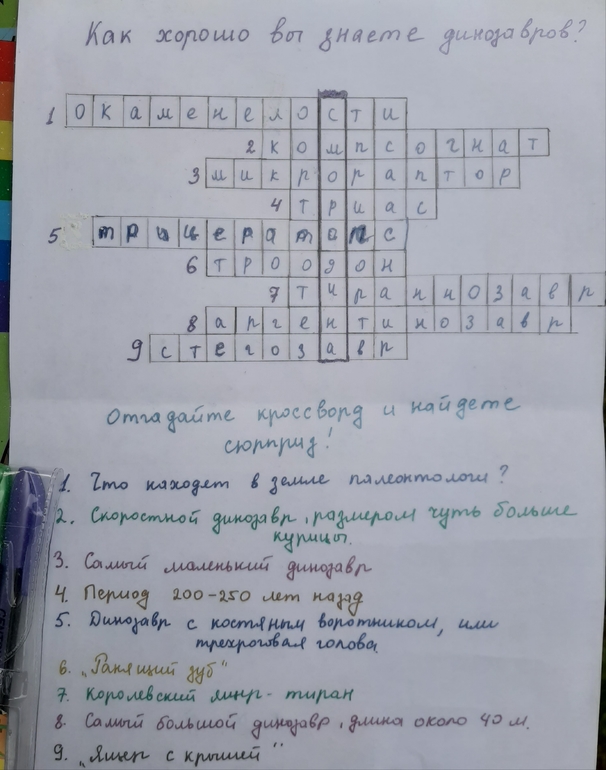 Как хорошо вы знаете динозавров?
1 окаменелости
2 компсогнат
3 микрораптор
4 триас
5 трицератопс
6 троодон
7 тираннозавр
8 аргентинозавр
9 стегозавр
Отгадайте кроссворд и найдете
сюрприз!
1. Что находят в земле палеонтологи?
2. Скоростной динозавр, размером чуть больше
курицы.
3. Самый маленький динозавр
4. Период 200-250 лет назад
5. Динозавр с костяным воротником, или
трехроговая голова
6. „Ранящий зуб“
7. Королевский ящер-тиран
8. Самый большой динозавр, длина около 40 м.
9. „Ящер с крышей“